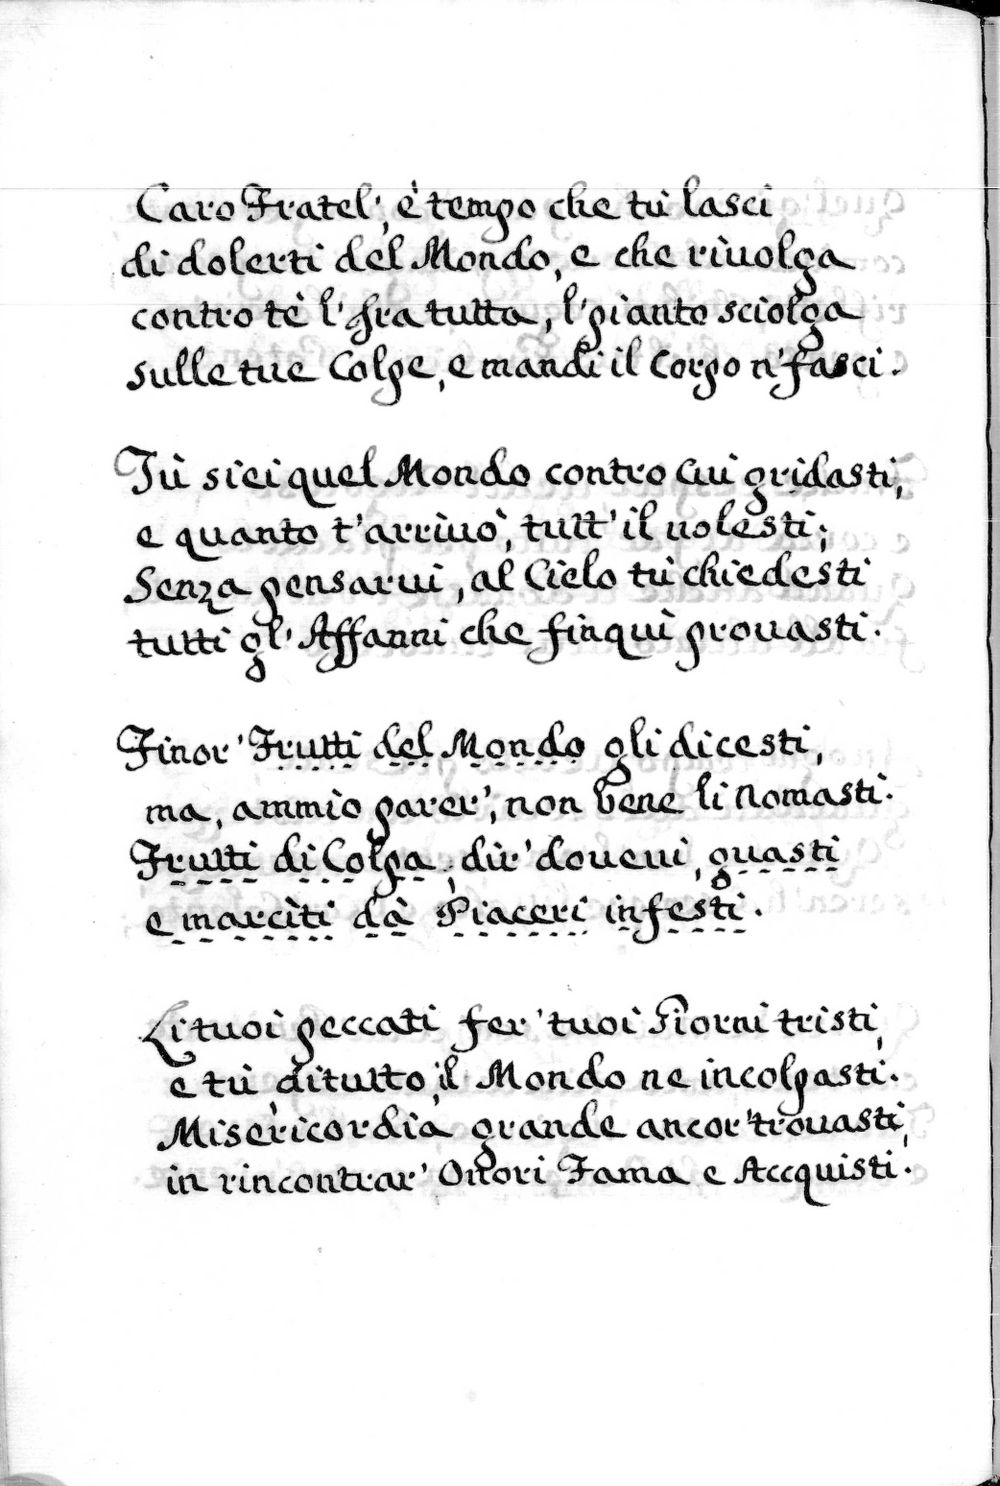 Caro Fratel', è tempo che tù lasci
di dolerti del Mondo, e che riuolga
contro tè l'Ira tutta, l'pianto sciolga
sulle tue Colpe, e mandi il Corpo n'fasci.
Tù siei quel Mondo contro Cui gridasti,
e quanto t'arriuò, tutt'il uolesti;
Senza pensarui, al Cielo tù chiedesti
tutti gl'Affanni che finquì prouasti.
Finor' Frutti del Mondo gli dicesti,
ma, ammio parer', non bene li Nomasti.
Frutti di Colpa, dir' doueui, guasti
e marciti dà Piaceri infesti.
Li tuoi peccati fer' tuoi Giorni tristi,
e tù, ditutto, il Mondo ne incolpasti.
Misericordia grande ancor' trouasti,
in rincontrar' Onori Fama e Accquisti.